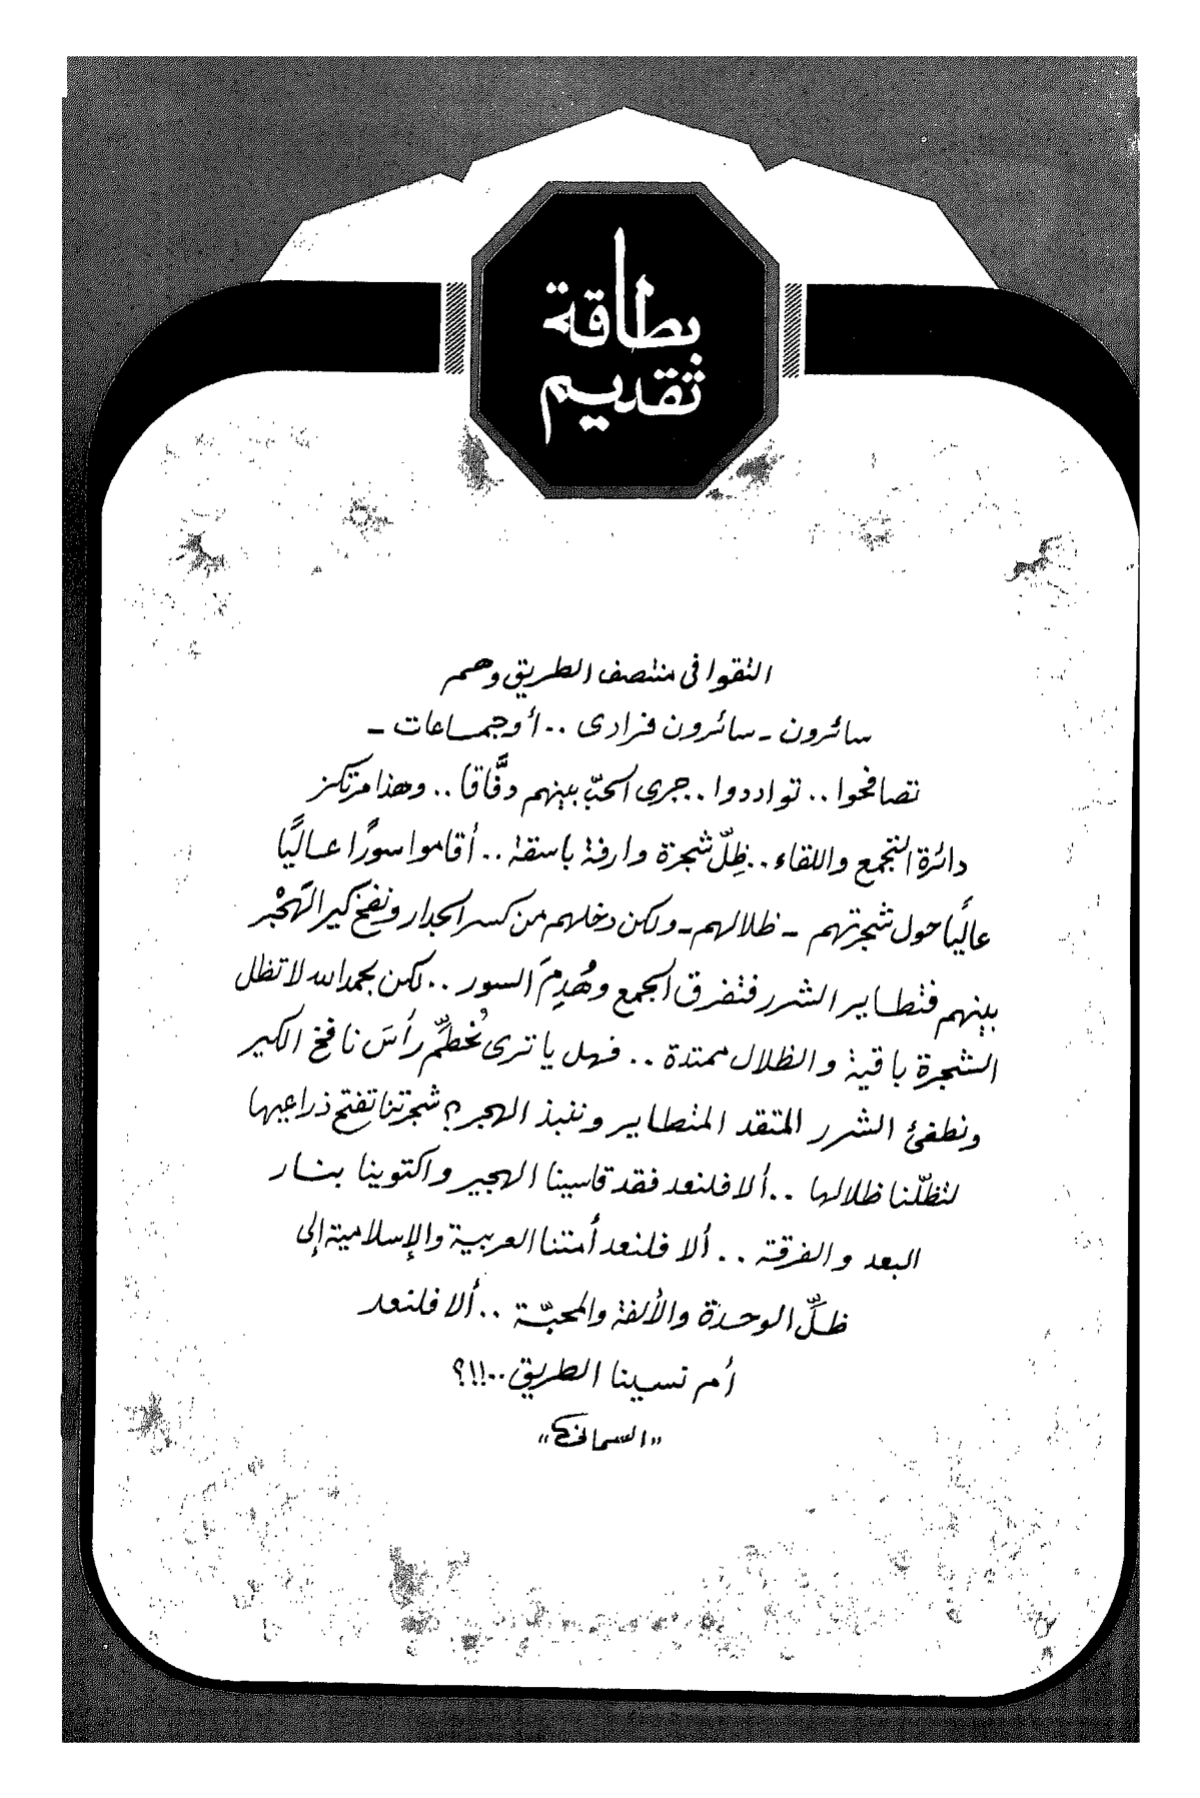 بطاقة
تقديم
التقوا فى منتصف الطريق وهم
سائرون - سائرون فرادى .. أو جماعات -
تصافحوا .. تواددوا .. جرى الحبّ بينهم دفَّاقا .. وهذا مرتكز
دائرة التجمع واللقاء .. ظِلّ شجرة وارفة باسقة .. أقاموا سورًا عاليًا
عاليًا حول شجرتهم - ظلالهم - ولكن دخلهم من كسر الجدار ونفخ كير الهَجْر
بينهم فتطاير الشرر فتفرق الجمع وهُدِمَ السور .. لكن بحمد الله لا تظل
الشجرة باقية والظلال ممتدة .. فهل يا ترى نُحطِّم رأسَ نافخ الكير
ونطفئ الشرر المتقد المتطاير وننبذ الهجر؟ شجرتنا تفتح ذراعيها
لتظلّنا ظلالها .. ألا فلنعد فقد قاسينا الهجير واكتوينا بنار
البعد والفرقة .. ألا فلنعد أمتنا العربية والإسلامية إلى
ظلِّ الوحدة والألفة والمحبّة .. ألا فلنعد
أم نسينا الطريق ..!!؟